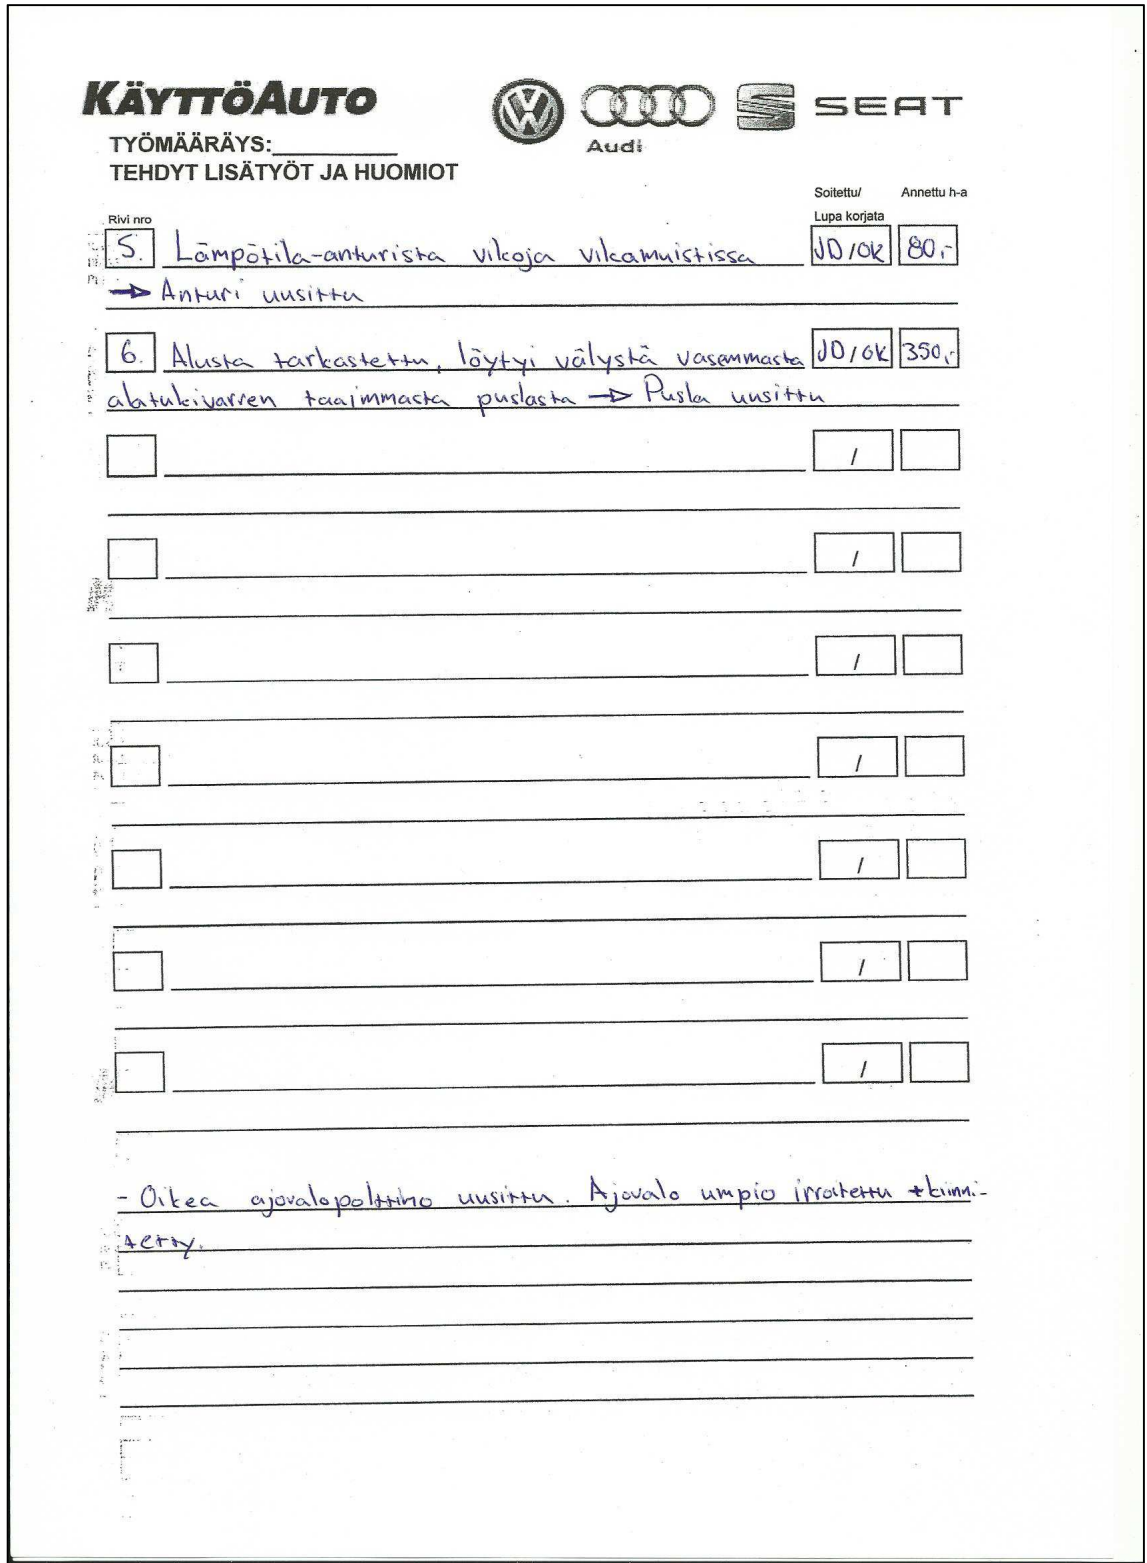 KÄYTTÖAUTO
Audi
SEAT
TYÖMÄÄRÄYS:__________
TEHDYT LISÄTYÖT JA HUOMIOT
Soitettu/ Annettu h-a
Rivi nro Lupa korjata
5. Lämpötila-anturista vikoja vikamuistissa JD/OK 80,-
→ Anturi uusittu
6. Alusta tarkastettu, löytyi välystä vasemmasta JD/OK 350,-
alatukivarren taaimmasta puslasta → Pusla uusittu
/
/
/
/
/
/
/
- Oikea ajovalopolttimo uusittu. Ajovalo umpio irroitettu + kiinni-
tetty.